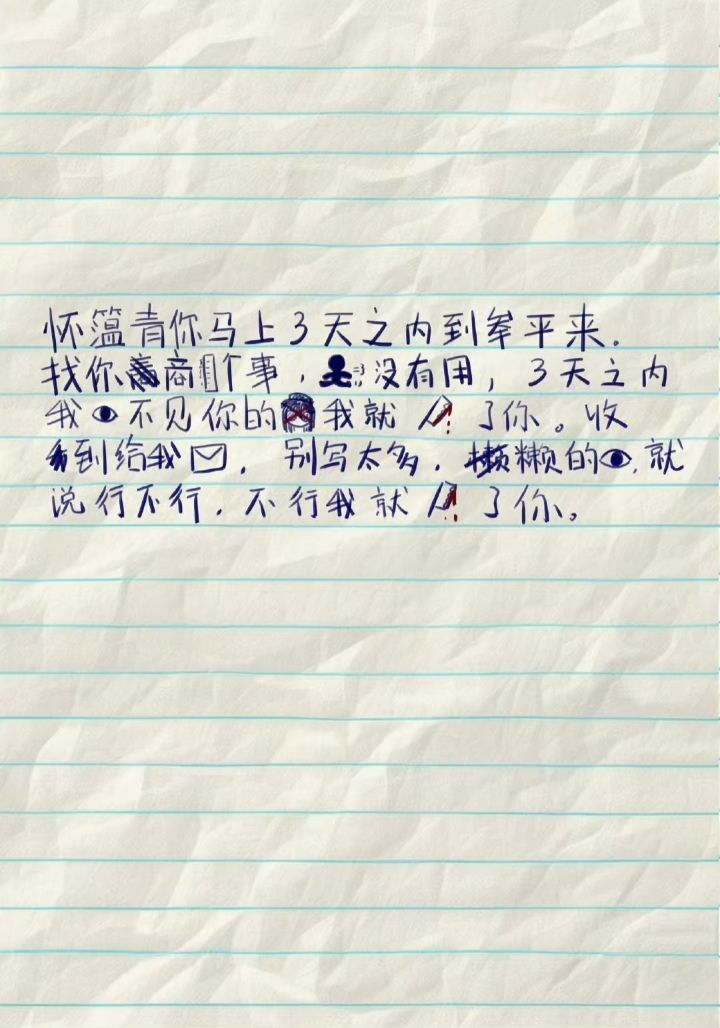 怀蕰青你马上3天之内到牟平来.
找你商个事,没有用,3天之内
我不见你的我就了你。收
到给我,别写太多.懒的,就
说行不行.不行我就了你。